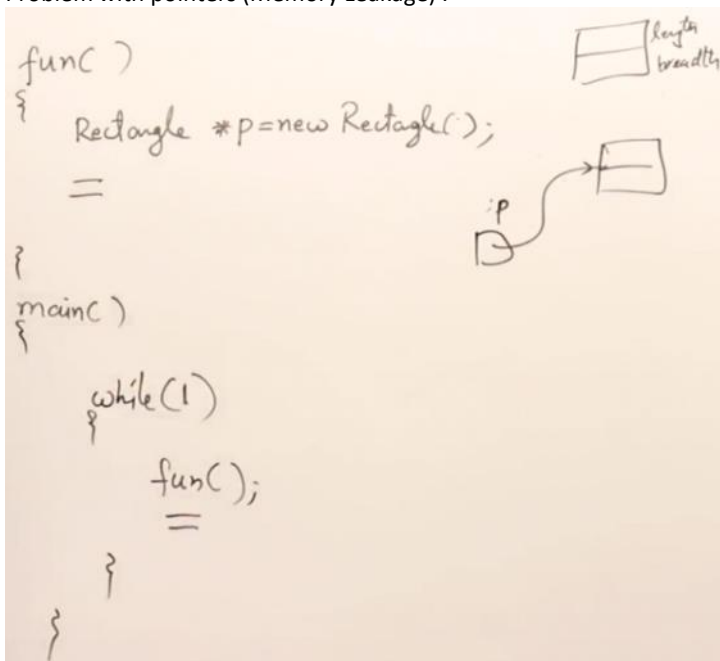 Problem with pointers (Memory Leakage) :
fun( )
{
Rectangle *p=new Rectagle( );
}
main( )
{
while(1)
{
fun( );
}
}
length
breadth
:p